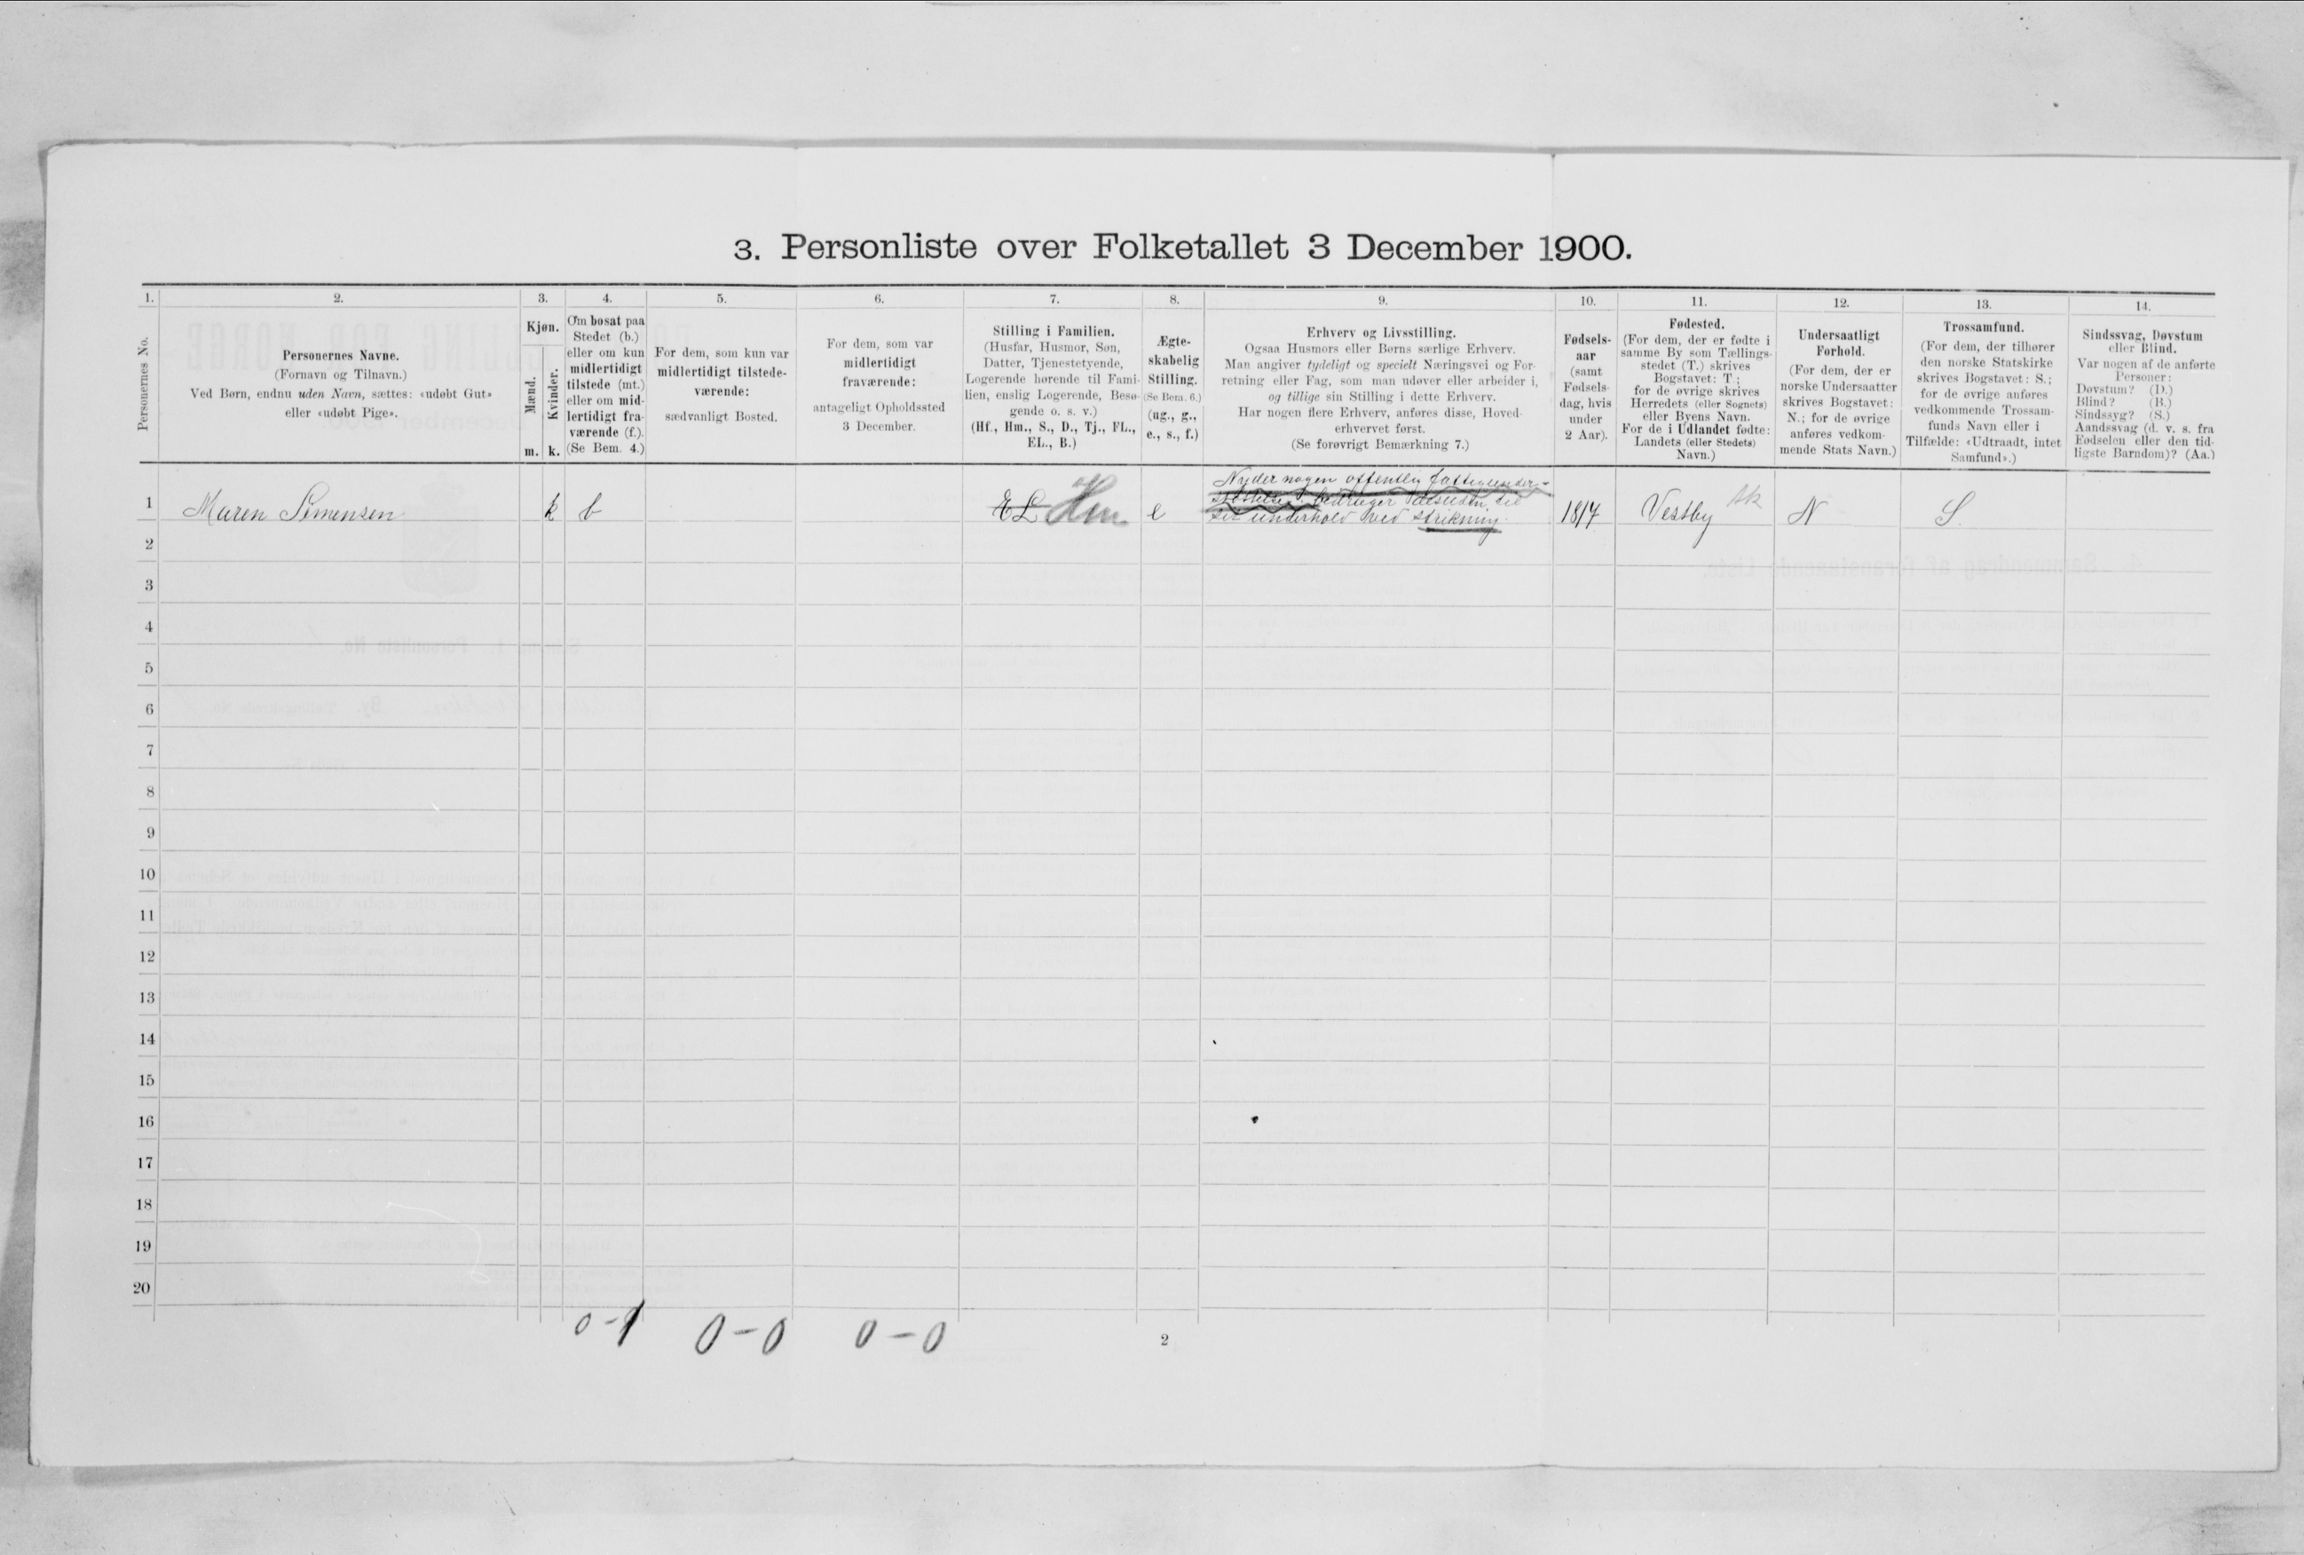 3. Personliste over Folketallet 3 December 1900.
1. 2. 3. 4. 5. 6. 7. 8. 9. 10. 11. 12. 13. 14.
Personernes No.
Personernes Navne.
(Fornavn og Tilnavn.)
Ved Børn, endnu uden Navn, sættes: «udøbt Gut»
eller «udøbt Pige».
Kjøn.
Mænd.
Kvinder.
m. k.
Om bosat paa
Stedet (b.)
eller om kun
midlertidigt
tilstede (mt.)
eller om mid-
lertidigt fra-
værende (f.).
(Se Bem. 4.)
For dem, som kun var
midlertidigt tilstede-
værende:
sædvanligt Bosted.
For dem, som var
midlertidigt
fraværende:
antageligt Opholdssted
3 December.
Stilling i Familien.
(Husfar, Husmor, Søn,
Datter, Tjenestetyende,
Logerende hørende til Fami-
lien, enslig Logerende, Besø-
gende o. s. v.)
(Hf., Hm., S., D., Tj., FL.,
EL., B.)
Ægte-
skabelig
Stilling.
(Se Bem. 6.)
(ug., g.,
e., s., f.)
Erhverv og Livsstilling.
Ogsaa Husmors eller Børns særlige Erhverv.
Man angiver tydeligt og specielt Næringsvei og For-
retning eller Fag, som man udøver eller arbeider i,
og tillige sin Stilling i dette Erhverv.
Har nogen flere Erhverv, anføres disse, Hoved-
erhvervet først.
(Se forøvrigt Bemærkning 7.)
Fødsels-
aar
(samt
Fødsels-
dag, hvis
under
2 Aar).
Fødested.
(For dem, der er fødte i
samme By som Tællings-
stedet (T.) skrives
Bogstavet: T.;
for de øvrige skrives
Herredets (eller Sognets)
eller Byens Navn.
For de i Udlandet fødte:
Landets (eller Stedets)
Navn.)
Undersaatligt
Forhold.
(For dem, der er
norske Undersaatter
skrives Bogstavet:
N.; for de øvrige
anføres vedkom-
mende Stats Navn.)
Trossamfund.
(For dem, der tilhører
den norske Statskirke
skrives Bogstavet: S.;
for de øvrige anføres
vedkommende Trossam-
funds Navn eller i
Tilfælde: «Udtraadt, intet
Samfund».)
Sindssvag, Døvstum
eller Blind.
Var nogen af de anførte
Personer:
Døvstum? (D.)
Blind? (B.)
Sindssyg? (S.)
Aandssvag (d. v. s. fra
Fødselen eller den tid-
ligste Barndom)? (Aa.)
Nyder nogen offentlig fattigunder-
støttelse, bidrager desuden til
sit underhold ved strikning.
1 Maren Simensen k b EL Hm e 1817 Vestby Ak N S.
2
3
4
5
6
7
8
9
10
11
12
13
14
15
16
17
18
19
20
0-1 0-0 0-0
2